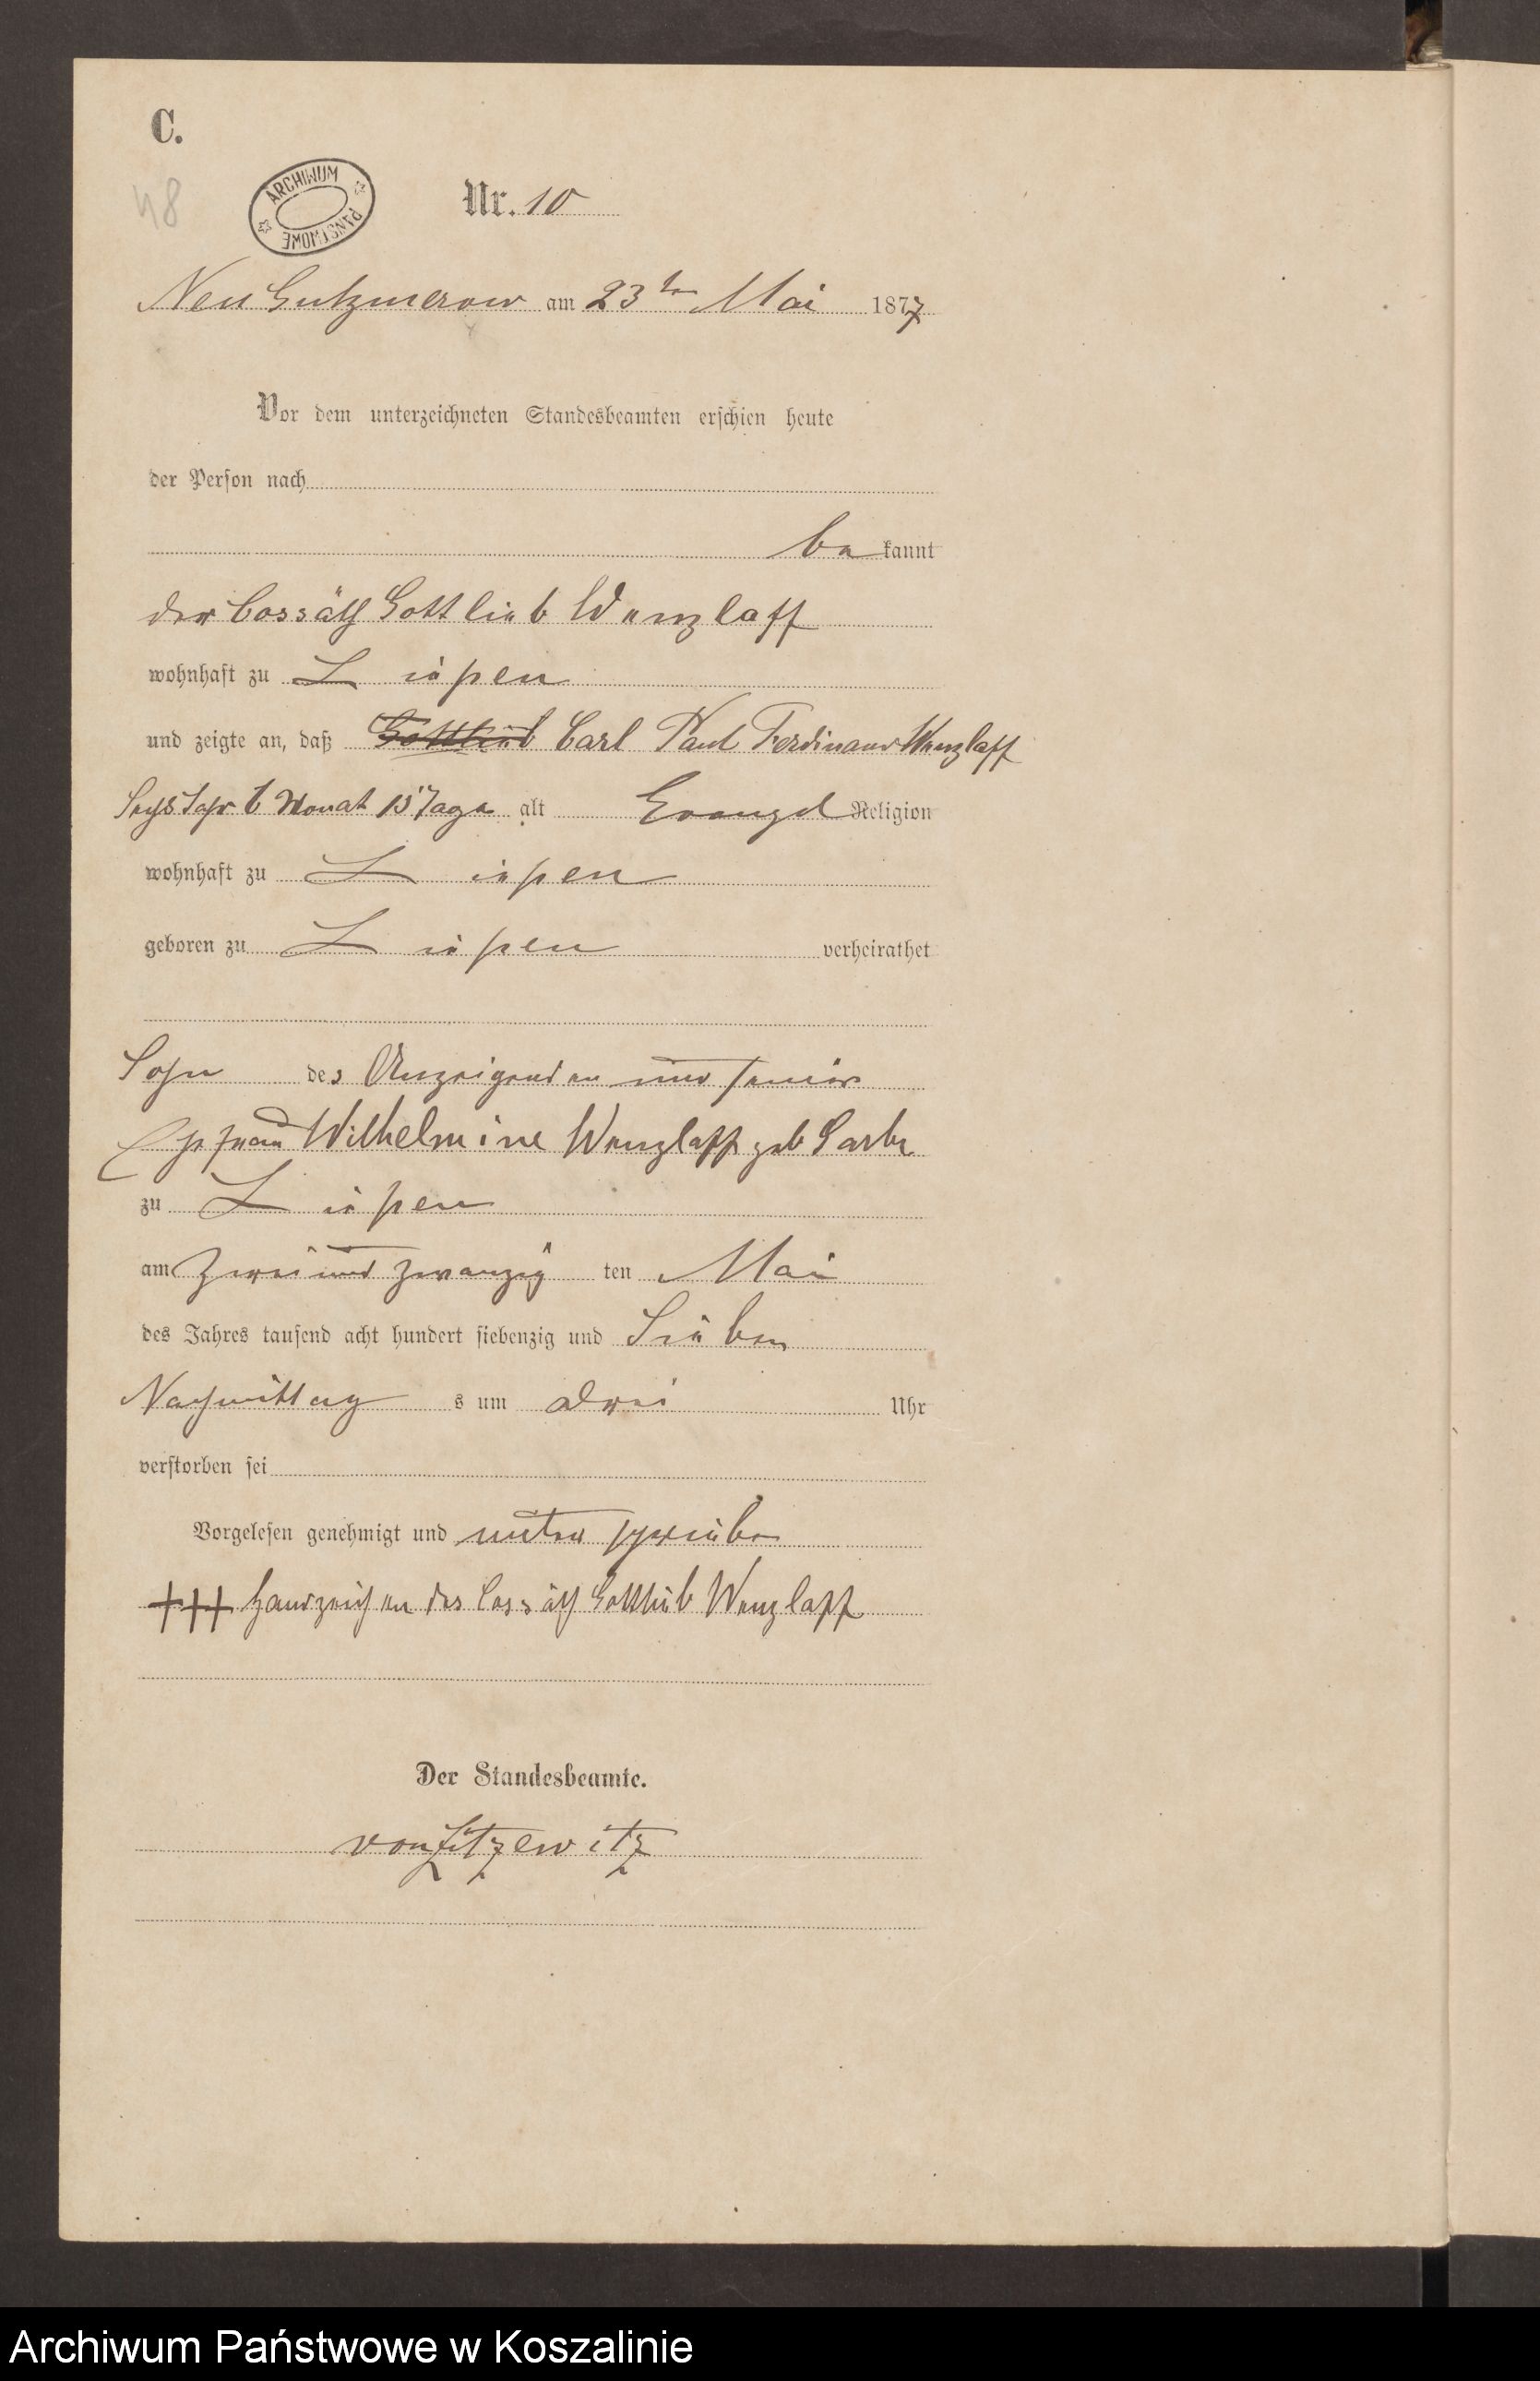 C.
48
ARCHIWUM PAŃSTWOWE
Nr. 10
Neu Gutzmerow am 23ten Mai 1877
Vor dem unterzeichneten Standesbeamten erschien heute
der Person nach
be kannt
der Cossäth Gottlieb Wenzlaff
wohnhaft zu Liepen
und zeigte an, daß Gottlieb Carl Paul Ferdinand Wenzlaff
Sechs Jahr 6 Monat 15 Tage alt Evangel Religion
wohnhaft zu Liepen
geboren zu Liepen verheirathet
Sohn des Anzeigenden und seiner
Ehefrau Wilhelmine Wenzlaff geb
zu Liepen
am Zwei und zwanzig ten Mai
des Jahres tausend acht hundert siebenzig und Sieben
Nachmittag s um Uhr
verstorben sei
Vorgelesen genehmigt und unterschrieben
+++ Handzeichen des Cossäth Gottlieb Wenzlaff
Der Standesbeamte.
von Zitzewitz
Archiwum Państwowe w Koszalinie